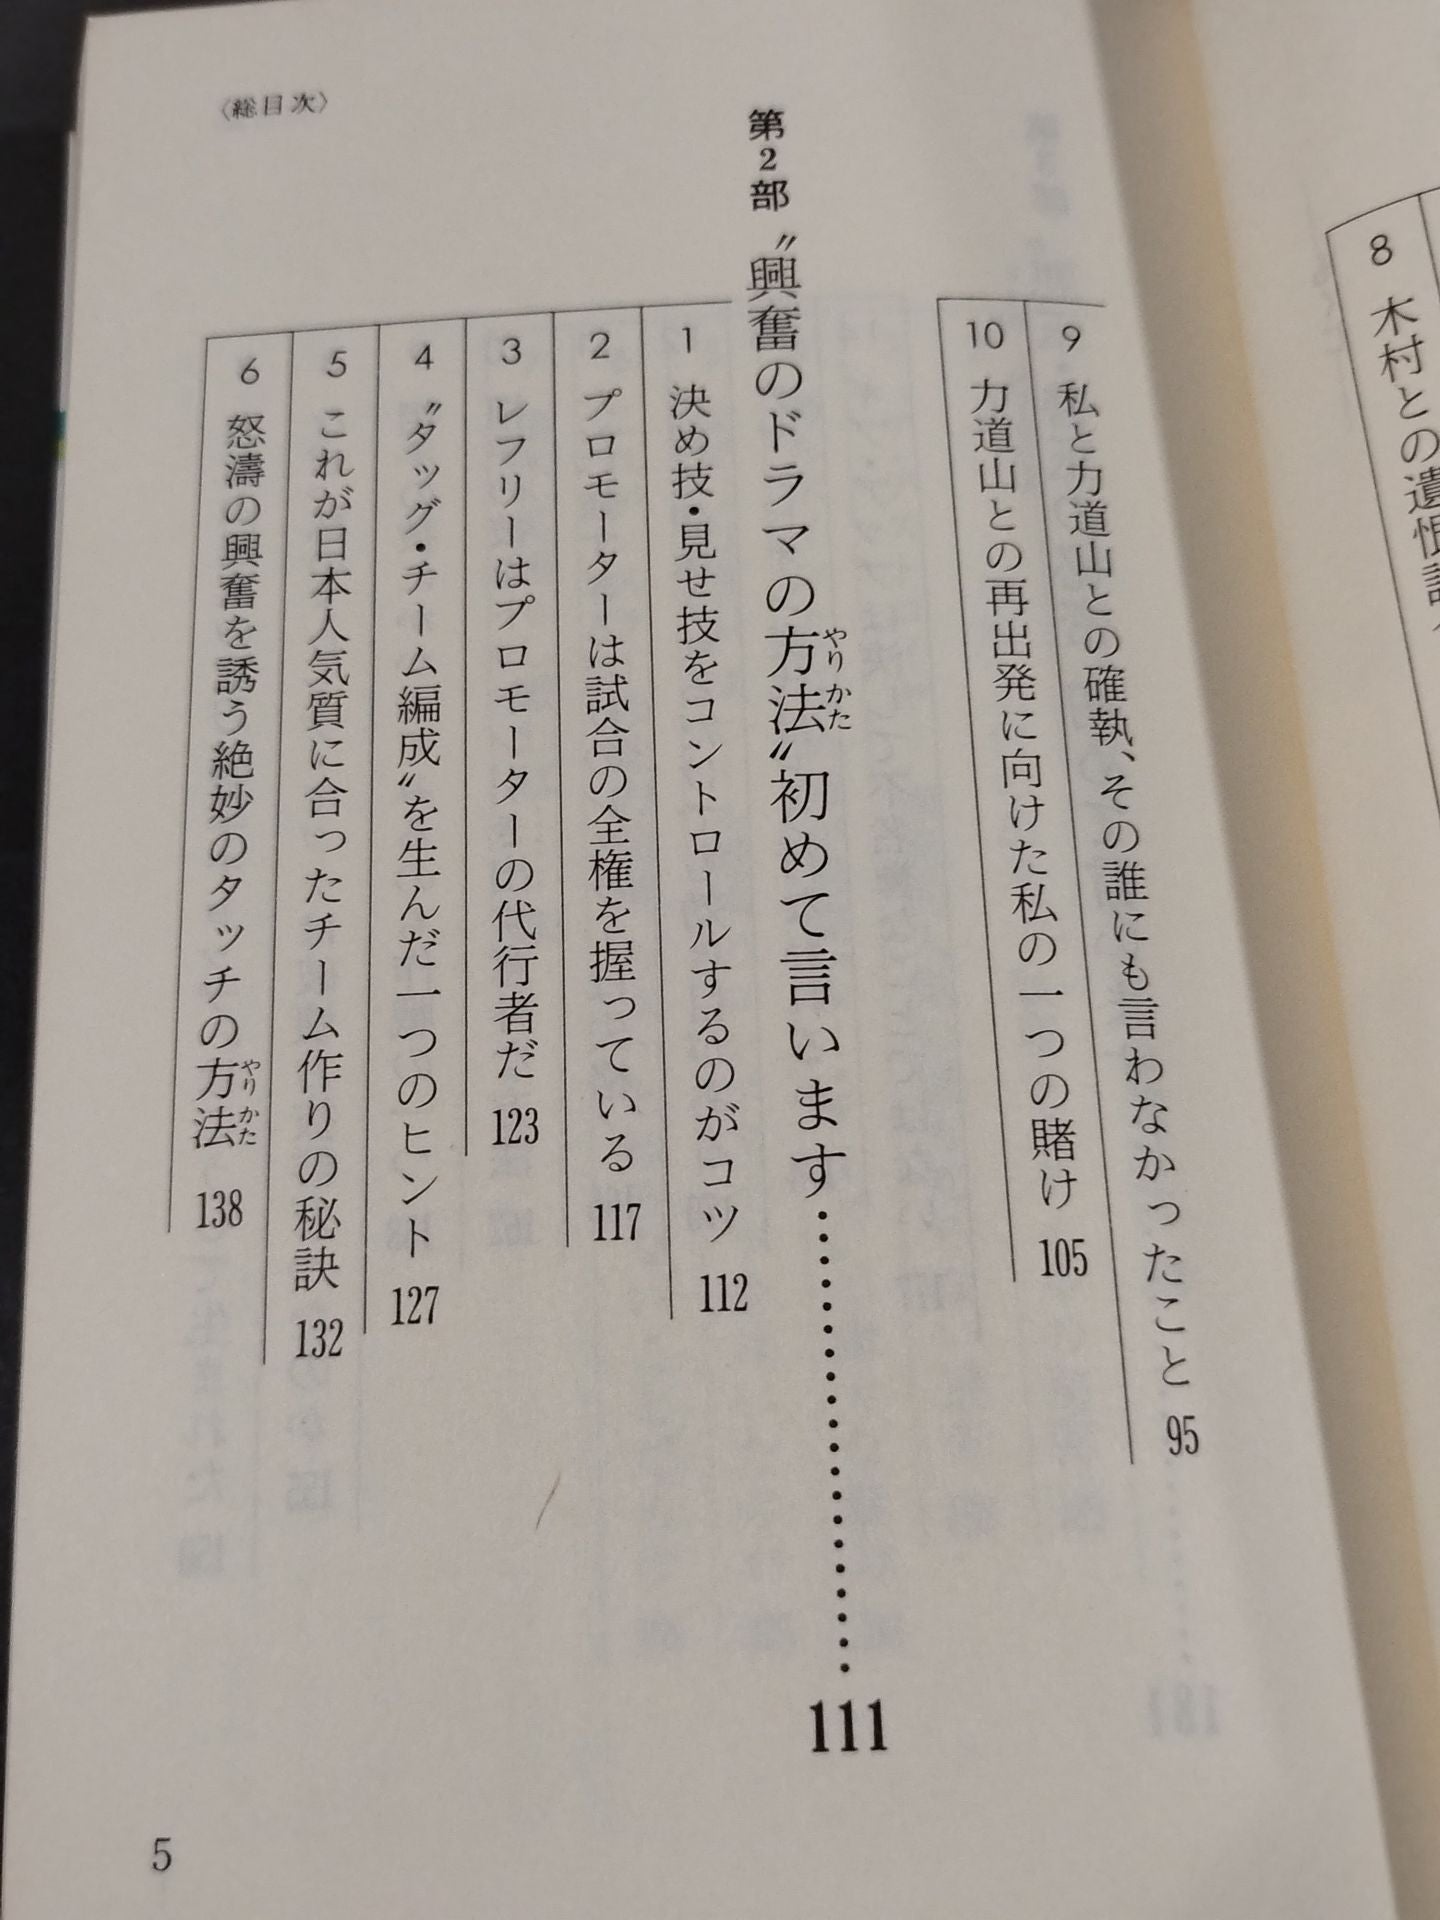 8 木村との遺恨
〈総目次〉
9 私と力道山との確執、その誰にも言わなかったこと 95
10 力道山との再出発に向けた私の一つの賭け 105
第2部 〝興奮のドラマの方法〟初めて言います…………………… 111
やりかた
1 決め技・見せ技をコントロールするのがコツ 112
2 プロモーターは試合の全権を握っている 117
3 レフリーはプロモーターの代行者だ 123
4 〝タッグ・チーム編成〟を生んだ一つのヒント 127
5 これが日本人気質に合ったチーム作りの秘訣 132
6 怒濤の興奮を誘う絶妙のタッチの方法 138
やりかた
5